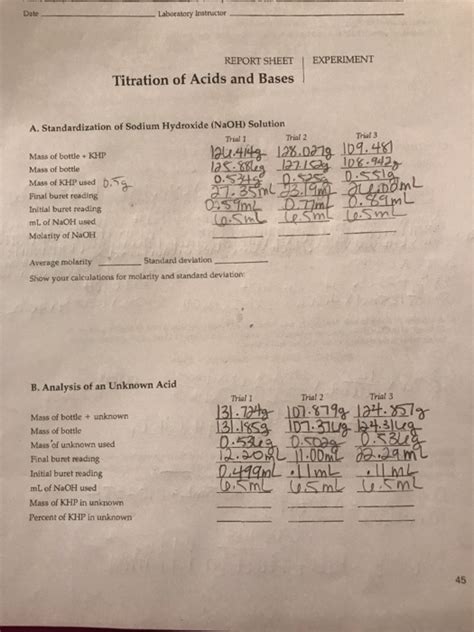 Date Laboratory Instructor
REPORT SHEET | EXPERIMENT
Titration of Acids and Bases
A. Standardization of Sodium Hydroxide (NaOH) Solution
Trial 1 Trial 2 Trial 3
Mass of bottle + KHP 126.414g 128.027g 109.481
Mass of bottle 125.88g 127.152g 108.942g
Mass of KHP used 0.5g 0.534g 0.525g 0.551g
Final buret reading 27.35mL 23.19mL 26.00mL
Initial buret reading 0.59mL 0.77mL 0.89mL
mL of NaOH used 6.5mL 6.5mL 6.5mL
Molarity of NaOH
Average molarity Standard deviation
Show your calculations for molarity and standard deviation:
B. Analysis of an Unknown Acid
Trial 1 Trial 2 Trial 3
Mass of bottle + unknown 131.724g 107.879g 124.857g
Mass of bottle 131.185g 107.314g 124.314g
Mass of unknown used 0.536g 0.502g 0.536g
Final buret reading 12.20mL 11.00mL 22.29mL
Initial buret reading 0.499mL .11mL .11mL
mL of NaOH used 6.5mL 6.5mL 6.5mL
Mass of KHP in unknown
Percent of KHP in unknown
45